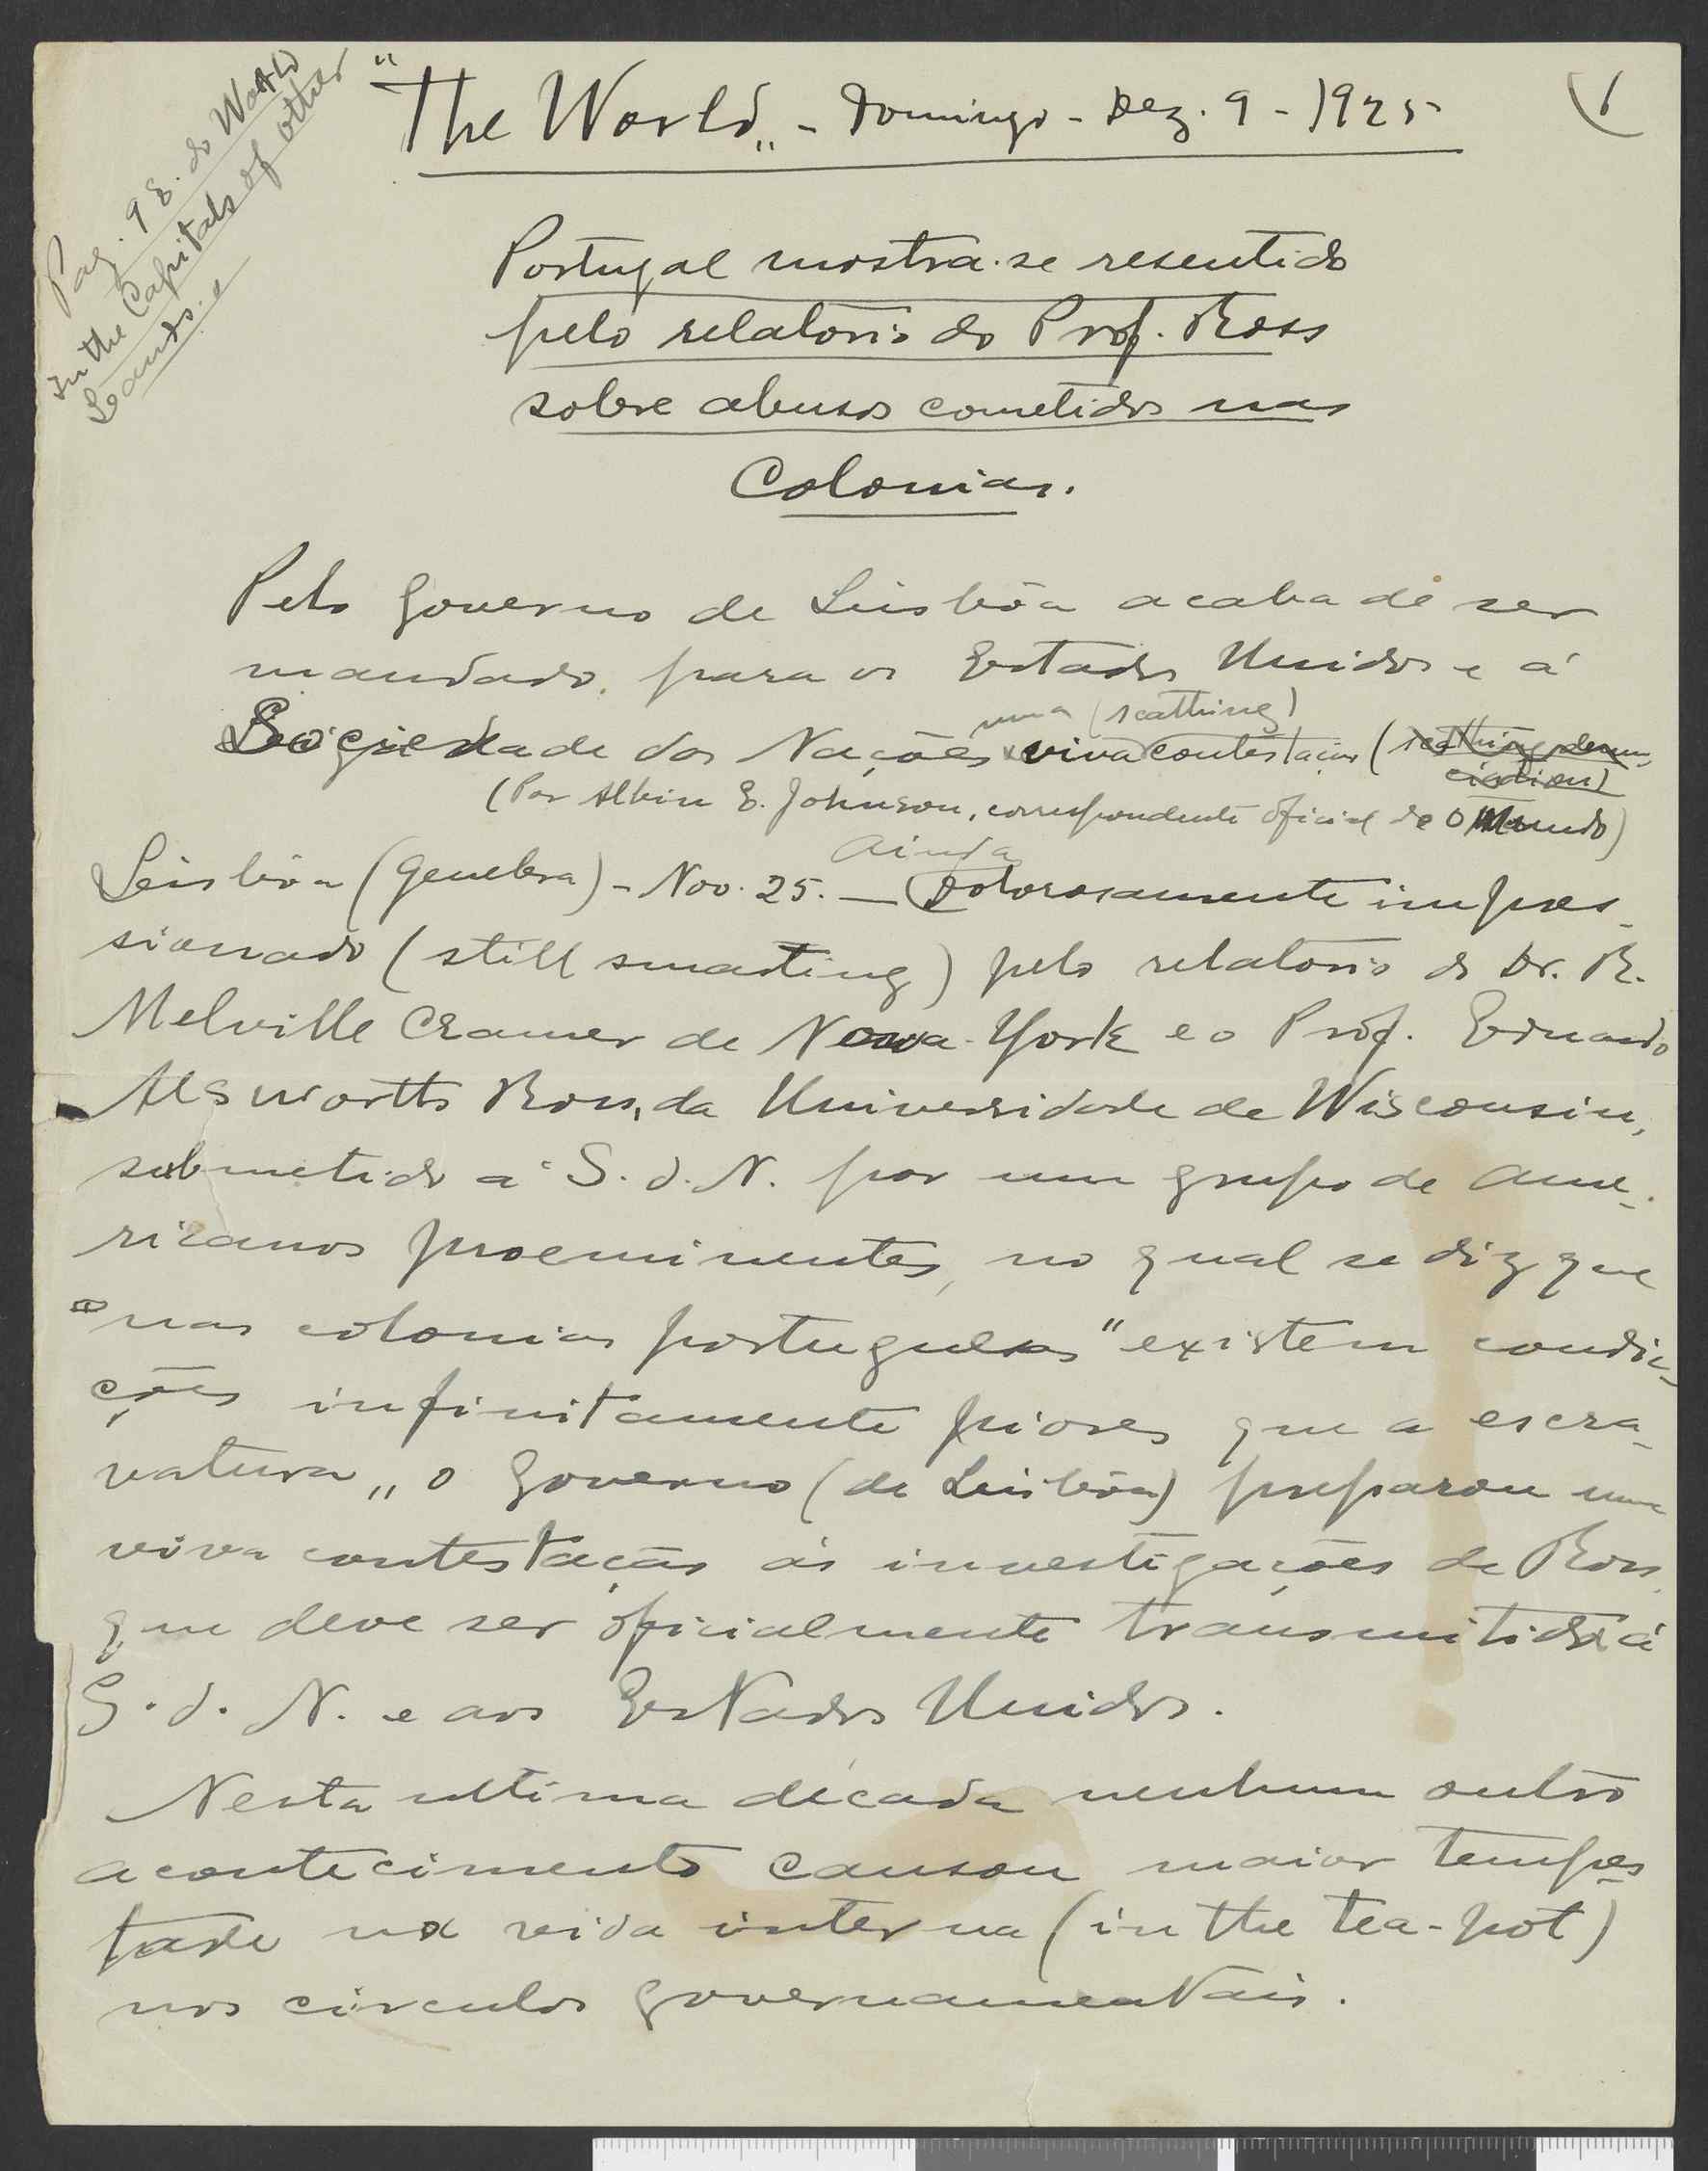 Pag. 9 E. do World
In the Capitals of other
Lands."
1
"The World„ - Domingo - Dez. 9 - 1925
Portugal mostra-se resentido
pelo relatorio do Prof. Ross
sobre abusos cometidos nas
Colonias.
Pelo Governo de Lisbôa acaba de ser
mandado para os Estados Unidos e á
uma (scathing)
Sociedade das Nações viva contestação (scathing denun-
ciation)
(Por Albin E. Johnson, correspondente oficial de O Mundo)
Ainda
Lisbôa (Genebra) - Nov. 25. — Dolorosamente impres-
sionado (still smarting) pelo relatorio do Dr. R.
Melville Cramer de Nova-York e o Prof. Eduardo
Alsworth Ross, da Universidade de Wisconsin,
submetido á S. d. N. por um grupo de ame-
ricanos proeminentes, no qual se diz que
nas colonias portuguesas "existem condi-
ções infinitamente piores que a escra-
vatura„ o Governo (de Lisbôa) preparou uma
viva contestação ás investigações de Ross,
que deve ser oficialmente transmitida á
S. d. N. e aos Estados Unidos.
Nesta ultima década nenhum outro
acontecimento causou maior tempes
tade na vida interna (in the tea-pot)
nos circulos governamentais.